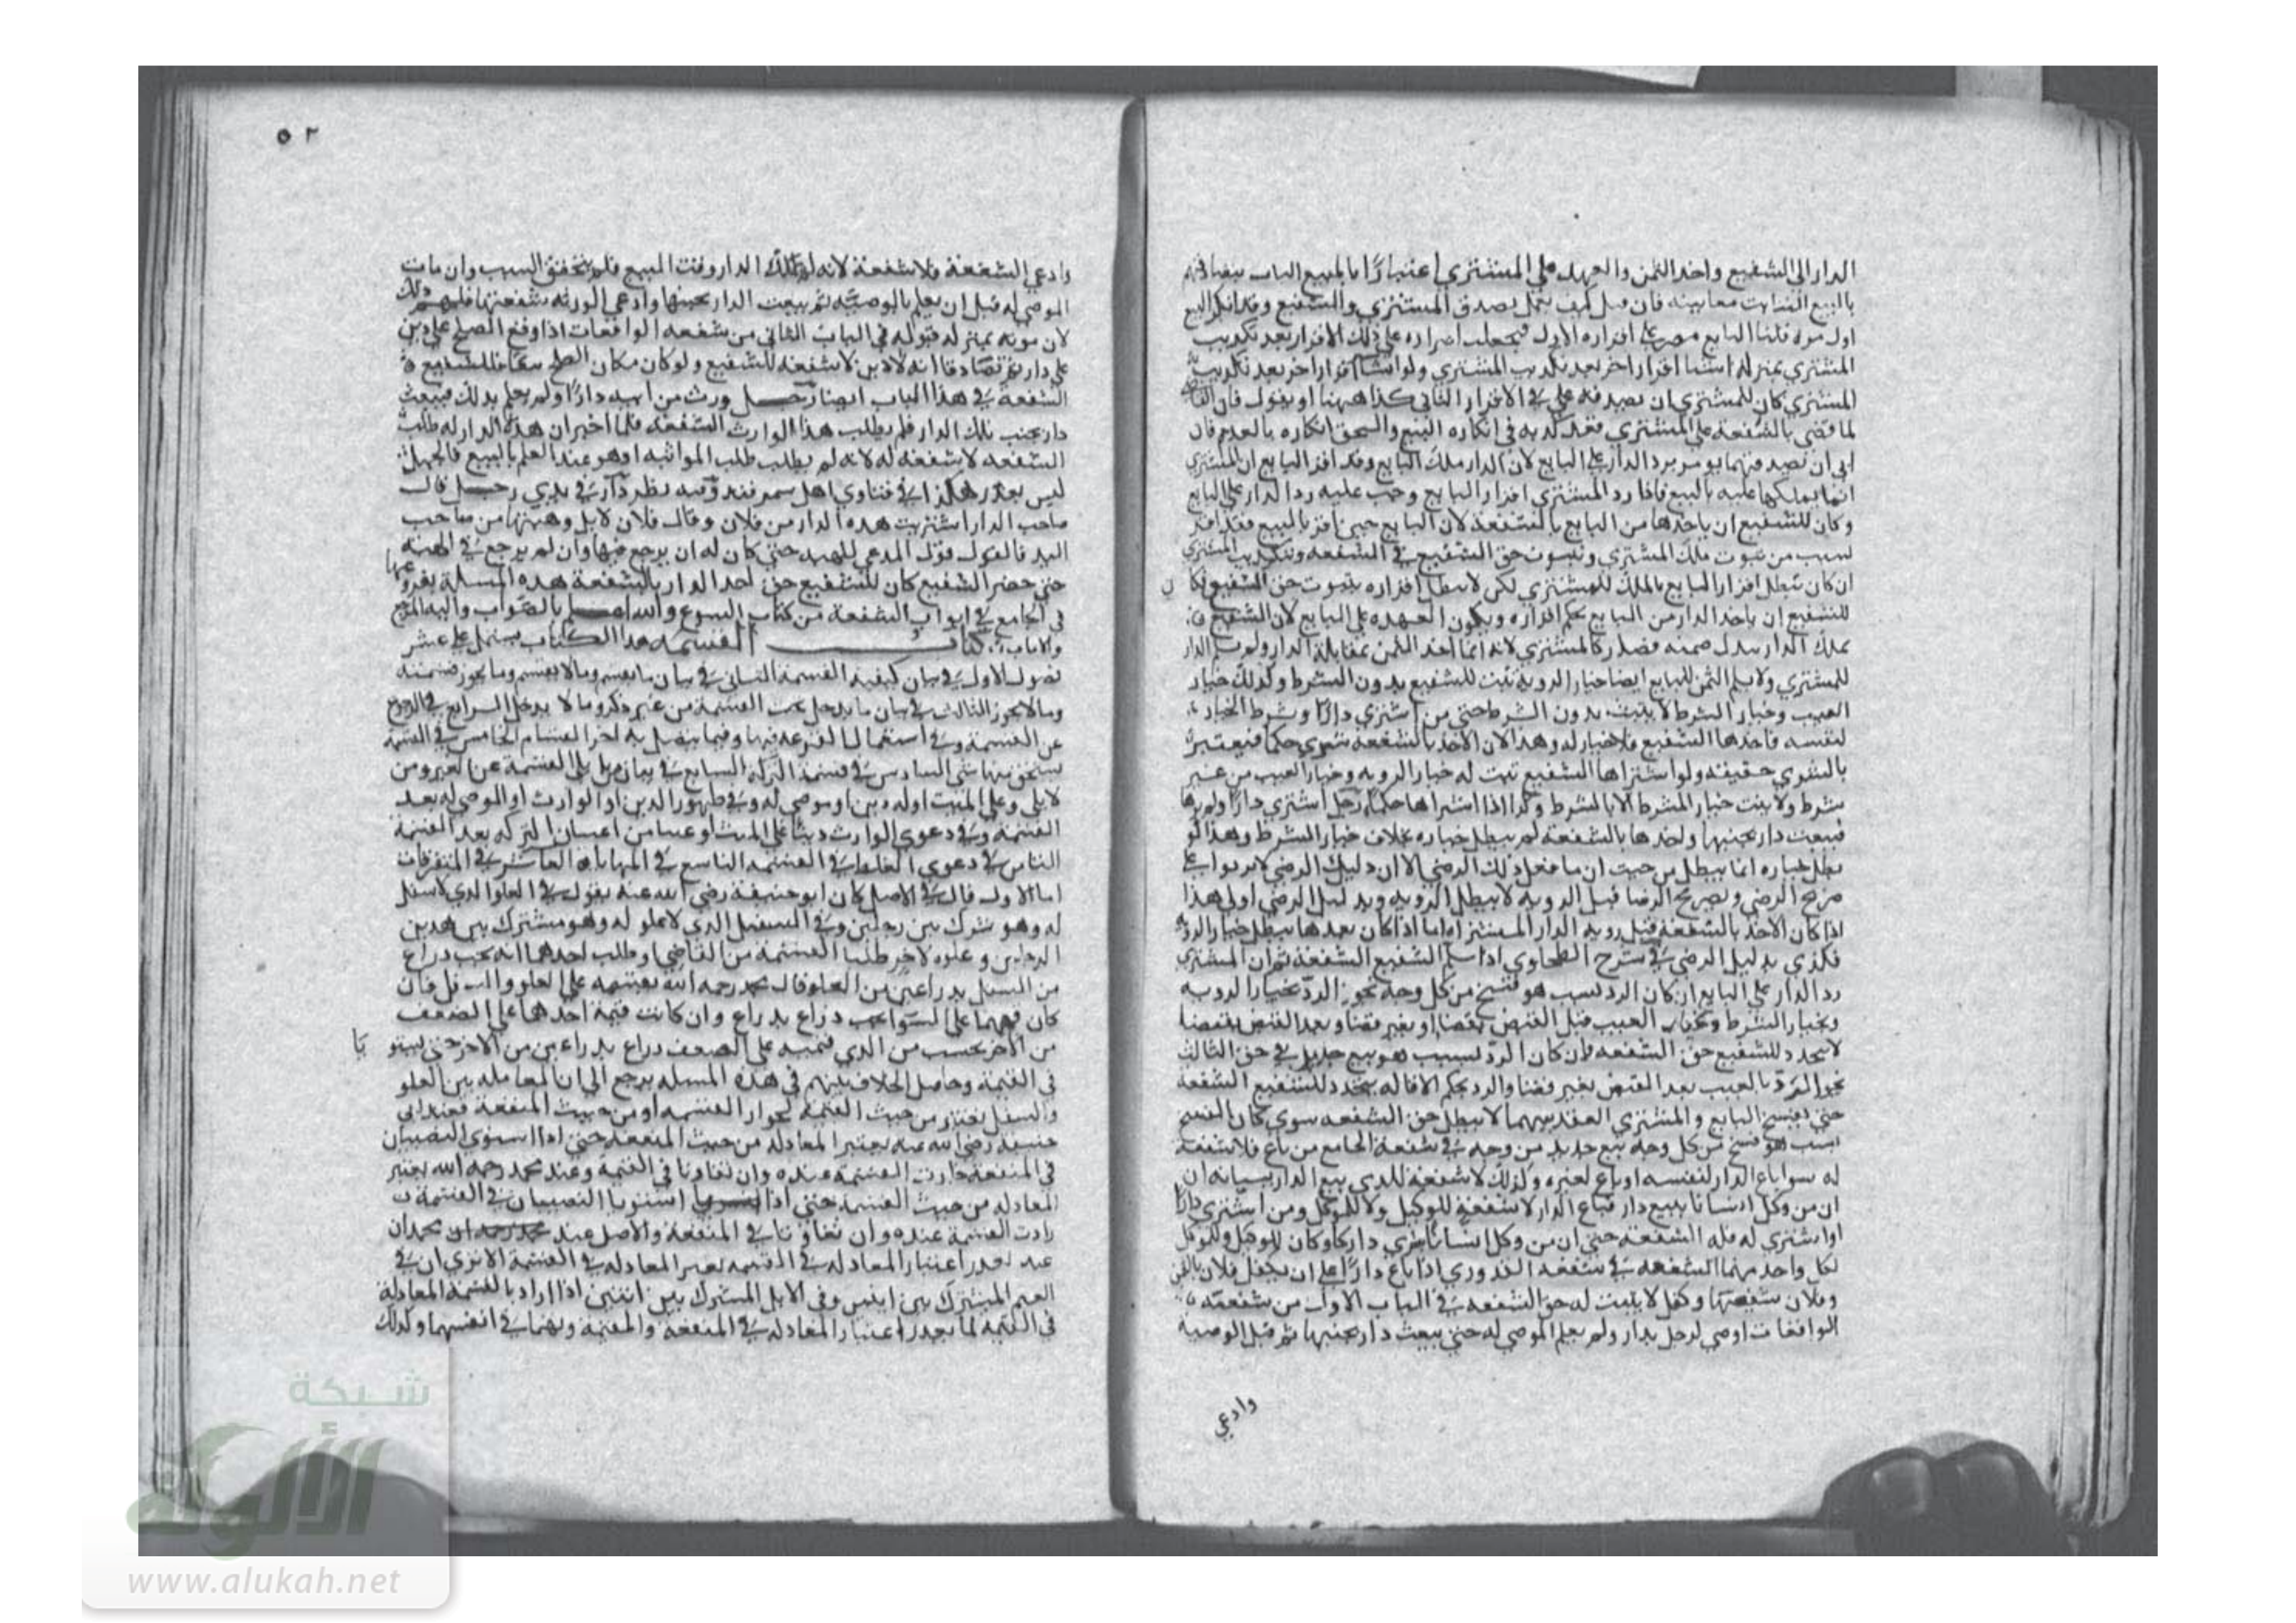 الدار الى الشفيع واخد الثمن والعهده على المشتري اعتبارًا بالمبيع الباب
بالبيع معاينه فان قيل كيف يصدق المشتري والشفيع وقد انكر البيع
اول مرة قلنا البايع مصر على اقراره الاول فيجعل اصراره على ذلك الاقرار بعد تكذيب
المشتري بمنزلة اقرار اخر بعد تكذيب المشتري ولو انشا اقرارا اخر بعد تكذيب
المشتري كان للمشتري ان يصدقه على الاقرار الثاني كذا ههنا او يقول فان القاضي
لما قضى بالشفعة على المشتري فقد كذبه في انكاره البيع والتحق انكاره بالعدم فان
ابى ان يصدقهما يومر برد الدار على البايع لان الدار ملك البايع وقد اقر البايع ان المشتري
انما يملكها عليه بالبيع فاذا رد المشتري اقرار البايع وجب عليه رد الدار على البايع
وكان للشفيع ان ياخدها من البايع بالشفعة لان البايع حين اقر بالبيع فقد اقر
لسبب من ثبوت ملك المشتري وثبوت حق الشفيع في الشفعه وبتكذيب المشتري
ان كان بطل اقرار البايع بالملك للمشتري لكن لا يبطل اقراره بثبوت حق الشفيع فكا
ن
للشفيع ان ياخد الدار من البايع بحكم اقراره ويكون العهده على البايع لان الشفيع
تملك الدار ببدل ضمنه فصار كالمشتري لانه انما اخد الثمن بمقابلة الدار ولم يسلم الدار
للمشتري ولا يلم الثمن للبايع ايضا خيار الروية يثبت للشفيع بدون الشرط وكذلك خيار
العيب وخيار الشرط لا يثبت بدون الشرط حتى من اشتري دارًا وشرط الخيار
لنفسه فاخدها الشفيع فلا خيار له وهذا لان الاخد بالشفعة شري حكما فيعتبر
بالشري حقيقة ولو اشتراها الشفيع ثبت له خيار الرويه وخيار العيب من غير
شرط ولا يثبت خيار الشرط الا بالشرط وكذا اذا اشتراها حكما رجل اشتري دارًا ولم يرها
فبيعت دار بجنبها واخدها بالشفعة لم يبطل خياره بخلاف خيار الشرط وهذا لو
بطل خياره انما يبطل من حيث ان ما فعل ذلك الرضي الا ان دليل الرضي لا يربوا على
صريح الرضي وتصريح الرضا قبل الروية لا يبطل الرويه ودليل الرضي اولى هذا
اذا كان الاخذ بالشفعة قبل روية الدار المشتراه اما اذا كان بعدها يبطل خيار الروية
بدليل الرضي في شرح الطحاوي اذا سلم الشفيع الشفعة ثم ان المشتري
رد الدار على البايع ان كان الرد بسبب هو فسخ من كل وجه نحو الرد بخيار الروية
وبخيار الشرط وبخيار العيب قبل القبض بقضا او بغير قضا وبعد القبض بقضا
لا يتجدد للشفيع حق الشفعه وان كان الرد بسبب هو بيع جديد في حق الثالث
نحو الرد بالعيب بعد القبض بغير قضا والرد بحكم الاقالة يتجدد للشفيع الشفعة
حتى يفسخ البايع والمشتري العقد بينهما لا يبطل حق الشفعه سوي كان الفسخ
بسبب هو فسخ من كل وجه بيع جديد من وجه في شفعة الجامع من باع فلا شفعة
له سوا باع الدار لنفسه او باع لغيره وكذلك لا شفعة للذي بيع الدار بسيانه ان
ان من وكل انسانا ببيع دار فباع الدار لا شفعة للوكيل ولا للموكل ومن اشتري دارًا
او اشتري له فله الشفعة حتى ان من وكل انسانا بشري دار كا وكان للوكيل وللموكل
لكل واحد منهما الشفعة في شفعة القدوري اذا باع دارًا على ان يكفل فلان بالثمن
وفلان شفيعها وكفل لا يثبت له حق الشفعه في الباب الاول من شفعة
الواقعات اوصي لرجل بدار ولم يعلم الموصي له حتى بيعت دار بجنبها ثم قبل الوصية
وادعي
٥٢
وادعي الشفعة فلا شفعة لانه لم يملك الدار وقت المبيع فلم يتحقق السبب وان مات
الموصي له قبل ان يعلم بالوصية ثم بيعت الدار بجنبها وادعي الورثه شفعتها فلهم ذلك
لان موته بمنزلة قبوله في الباب الثاني من شفعه الواقعات اذا وقع الصلح على دين
على دار ثم تصادقا انه لا دين لا شفعة للشفيع ولو كان مكان
الشفعة في هذا الباب ايضا رجل ورث من ابيه دارًا ولم يعلم بدلك فبيعت
دار بجنب تلك الدار فلم يطلب هذا الوارث الشفعه فلما اخبر ان هذه الدار له طلب
الشفعه لا شفعة له لانه لم يطلب طلب المواثبه او هو عند العلم بالبيع فالجهل
ليس بعذر هكذا في فتاوي اهل سمرقند وفيه نظر دار في يدي رجل قال
صاحب الدار اشتريت هذه الدار من فلان وقال فلان لا بل وهبتها من صاحب
اليد فالقول قول المدعي للهبه حتى كان له ان يرجع فيها وان لم يرجع في الهبة
حتى حضر الشفيع كان للشفيع حق اخد الدار بالشفعة هذه المسلة بفروعها
في الجامع في ابواب الشفعة من كتاب البيوع والله اعلم بالصواب واليه المرجع
والاياب كتاب القسمه هدا الكتاب يشتمل على عشر
فصول الاول في بيان كيفية القسمة الثاني في بيان ما يقسم وما لا يقسم وما يجوز قسمته
وما لا يجوز الثالث في بيان ما يدخل تحت القسمة من غير ذكر وما لا يدخل الرابع في الرجوع
عن القسمة وفي استعمال القرعه فيها وفيما يتصل به اخر القسام الخامس في القسمة
يستحق منها شي السادس في قسمة التركة السابع في بيان من يلي القسمة عن الغير ومن
لا يلي وعلى الميت او له دين او موصي له وفي ظهور الدين او الوارث او الموصي له بعد
القسمة وفي دعوي الوارث دينا على الميت او عينا من اعيان التركه بعد القسمة
الثامن في دعوي الغلط في القسمة التاسع في المهاياة العاشر في المتفرقات
اما الاول قال في الاصل كان ابو حنيفة رضي الله عنه يقول في العلو الدي لا سفل
له وهو مشترك بين رجلين وفي السفل الدي لا علو له وهو مشترك بين هدين
الرجلين وعلوه لاخر طلبا القسمة من القاضي او طلب احدهما انه يحسب دراع
من السفل بدراعين من العلو وقال محمد رحمه الله يقسمه على العلو والسفل فان
كان قيمهما على السوا يحسب دراع بدراع وان كانت قيمة احدهما على الضعف
من الاخر يحسب من الدي قيمته على الضعف دراع بدراعين من الاخر حتى يستو
يا
في القيمة وحاصل الخلاف بينهم في هذه المسله يرجع الى ان المعامله بين العلو
والسفل يعتبر من حيث القيمة لجواز القسمه او من حيث المنفعة فعند ابي
حنيفة رضي الله عنه يعتبر المعادله من حيث المنفعة حتى اذا استوي النصيبان
في المنفعة جازت القسمة عنده وان تفاوتا في القيمة وعند محمد رحمه الله يعتبر
المعادله من حيث القيمه حتى اذا استويا النصيبان في القسمة
زادت القسمة عنده وان تفاوتا في المنفعة والاصل عند محمد ان
عند تعدر اعتبار المعادله في القيمه يعتبر المعادله في القسمة الا تري ان في
الغنم المشترك بين اثنين وفي الابل المشترك بين اثنين اذا اراد بالقسمة المعادلة
في القيمه لما تعدر اعتبار المعادله في المنفعة والقيمة وبهما في انفسهما وكدلك
شبكة
الألوكة
www.alukah.net